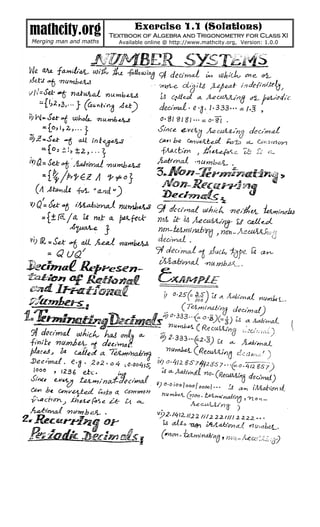 mathcity.org
Merging man and maths
Exercise 1.1 (Solutions)
Textbook of Algebra and Trigonometry for Class XI
Available online @ http://www.mathcity.org, Version: 1.0.0
NUMBER SYSTEMS
We are familiar with the following
sets of numbers
i) N = Set of natural numbers
= {1,2,3,...} (Counting Set)
ii) W = Set of whole numbers
= {0,1,2,...}
iii) Z = Set of all integers
= {0,±1,±2,...}
iv) Q = Set of rational numbers
= {p/q / p,q ∈ Z ∧ q≠0}
(∧ Stands for "and")
v) Q' = Set of irrational numbers
= {±√a / a is not a perfect
square}
vi) R = Set of all real numbers
= Q∪Q'
Decimal Represen-
tation of Rational
and Irrational
Numbers,
1. Terminating Decimals
A decimal which has only a
finite number of decimal
places, is called a Terminating
Decimal. e.g. 202.04, .00415,
1000, 1236 etc.
Since every terminat decimal
can be converted into a common
fraction, therefore it is a
rational number.
2. Recurring or
Periodic Decimals,
A decimal in which one or
more digits repeat indefinitely,
is called a Recurring or periodic
decimal. e.g. 1.333... = 1.3,
0.818181... = 0.81.
Since every recurring decimal
can be converted into a common
fraction, therefore it is a
rational number.
3. Non-Terminating,
Non-Recurring
Decimals,
A decimal which neither terminates
nor it is recurring is called
non-terminating, non-recurring
decimal.
A decimal of such type is an
irrational number.
EXAMPLE
i) 0.25 (= 25/100) is a Rational number.
(Terminating decimal)
ii) 0.333... (= 0.3) (= 1/3) is a Rational
number (Recurring decimal)
2.333... (= 2.3) is a Rational
number (Recurring decimal)
0.142857142857... (= 0.142857)
is a Rational no. (Recurring decimal)
v) 0.01001000100001... is an irrational
number (non-terminating, non-
recurring)
is also an irrational number
(non-terminating, non-recurring)